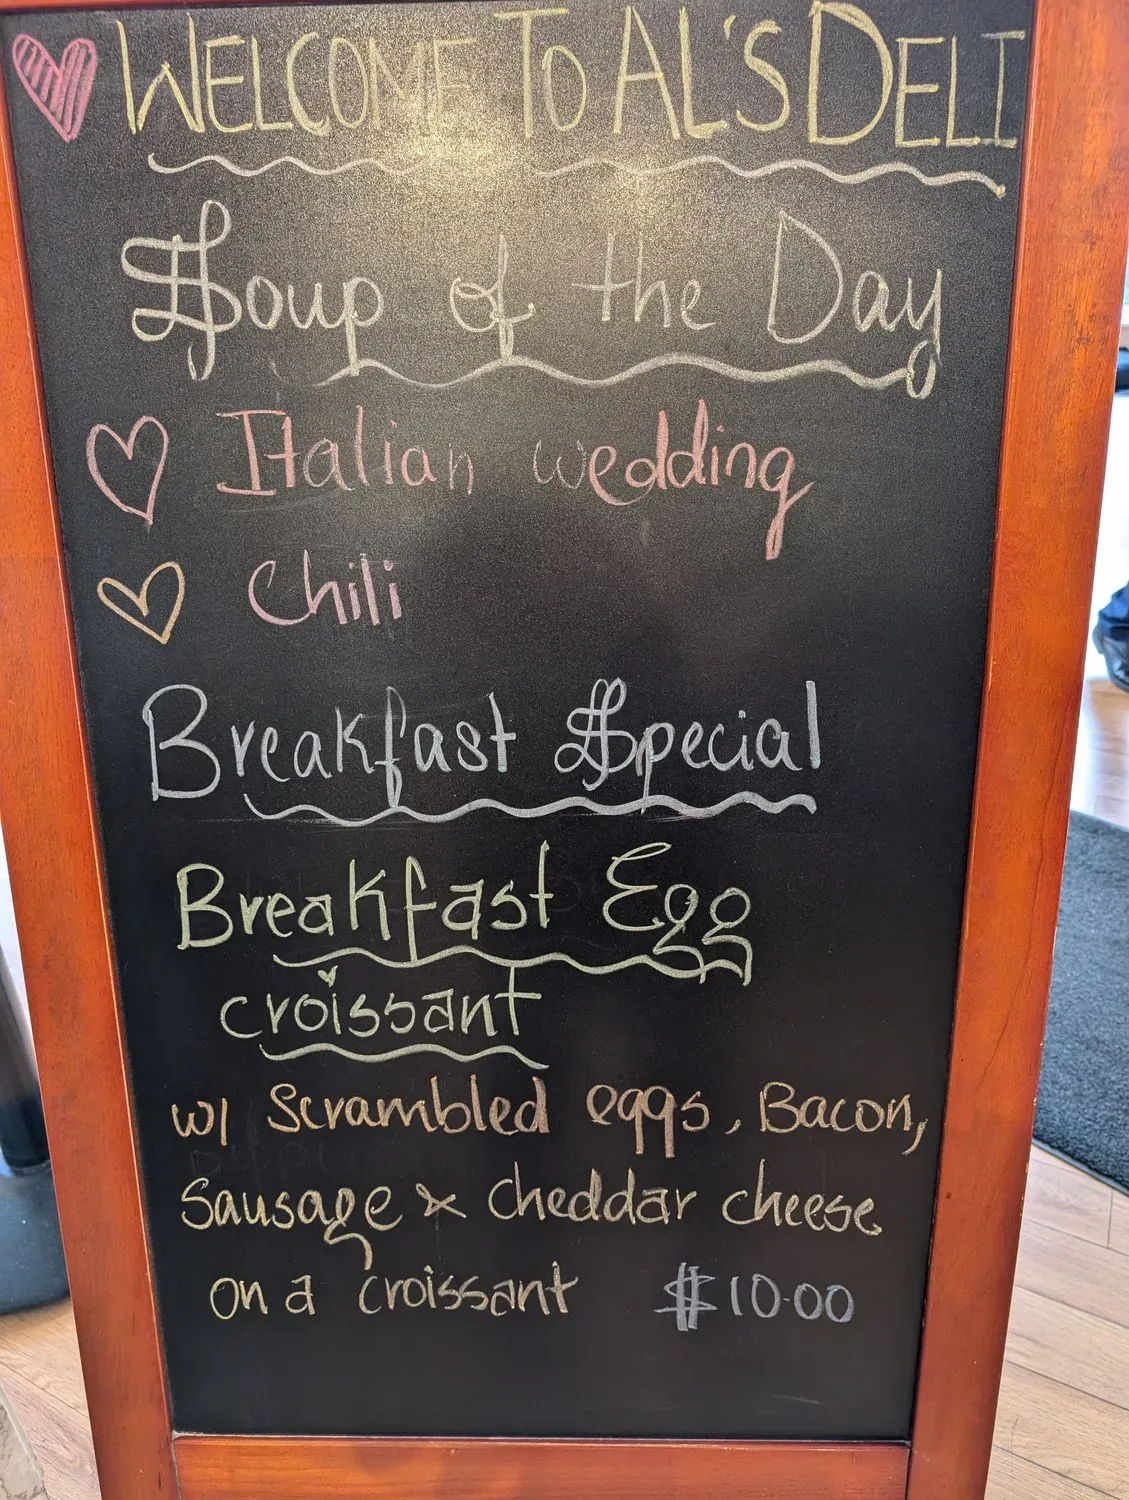 WELCOME TO AL'S DELI
Soup of the Day
Italian wedding
Chili
Breakfast Special
Breakfast Egg
croissant
w/ Scrambled eggs, Bacon,
Sausage & cheddar cheese
on a croissant $10.00